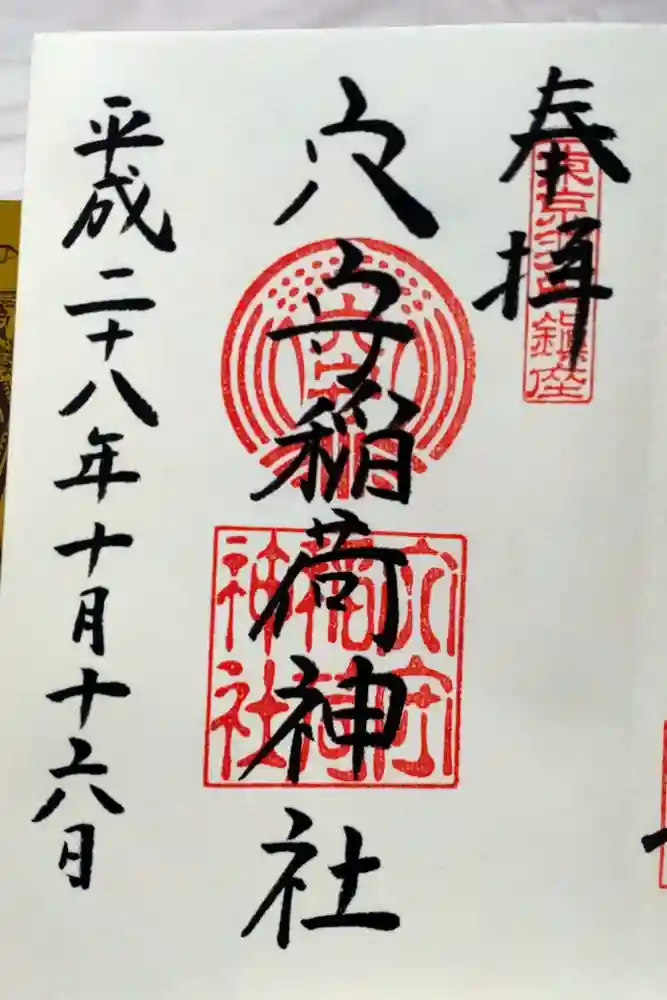 奉拝
東京羽田鎮座
穴守稲荷神社
穴守
稲荷
神社
平成二十八年十月十六日